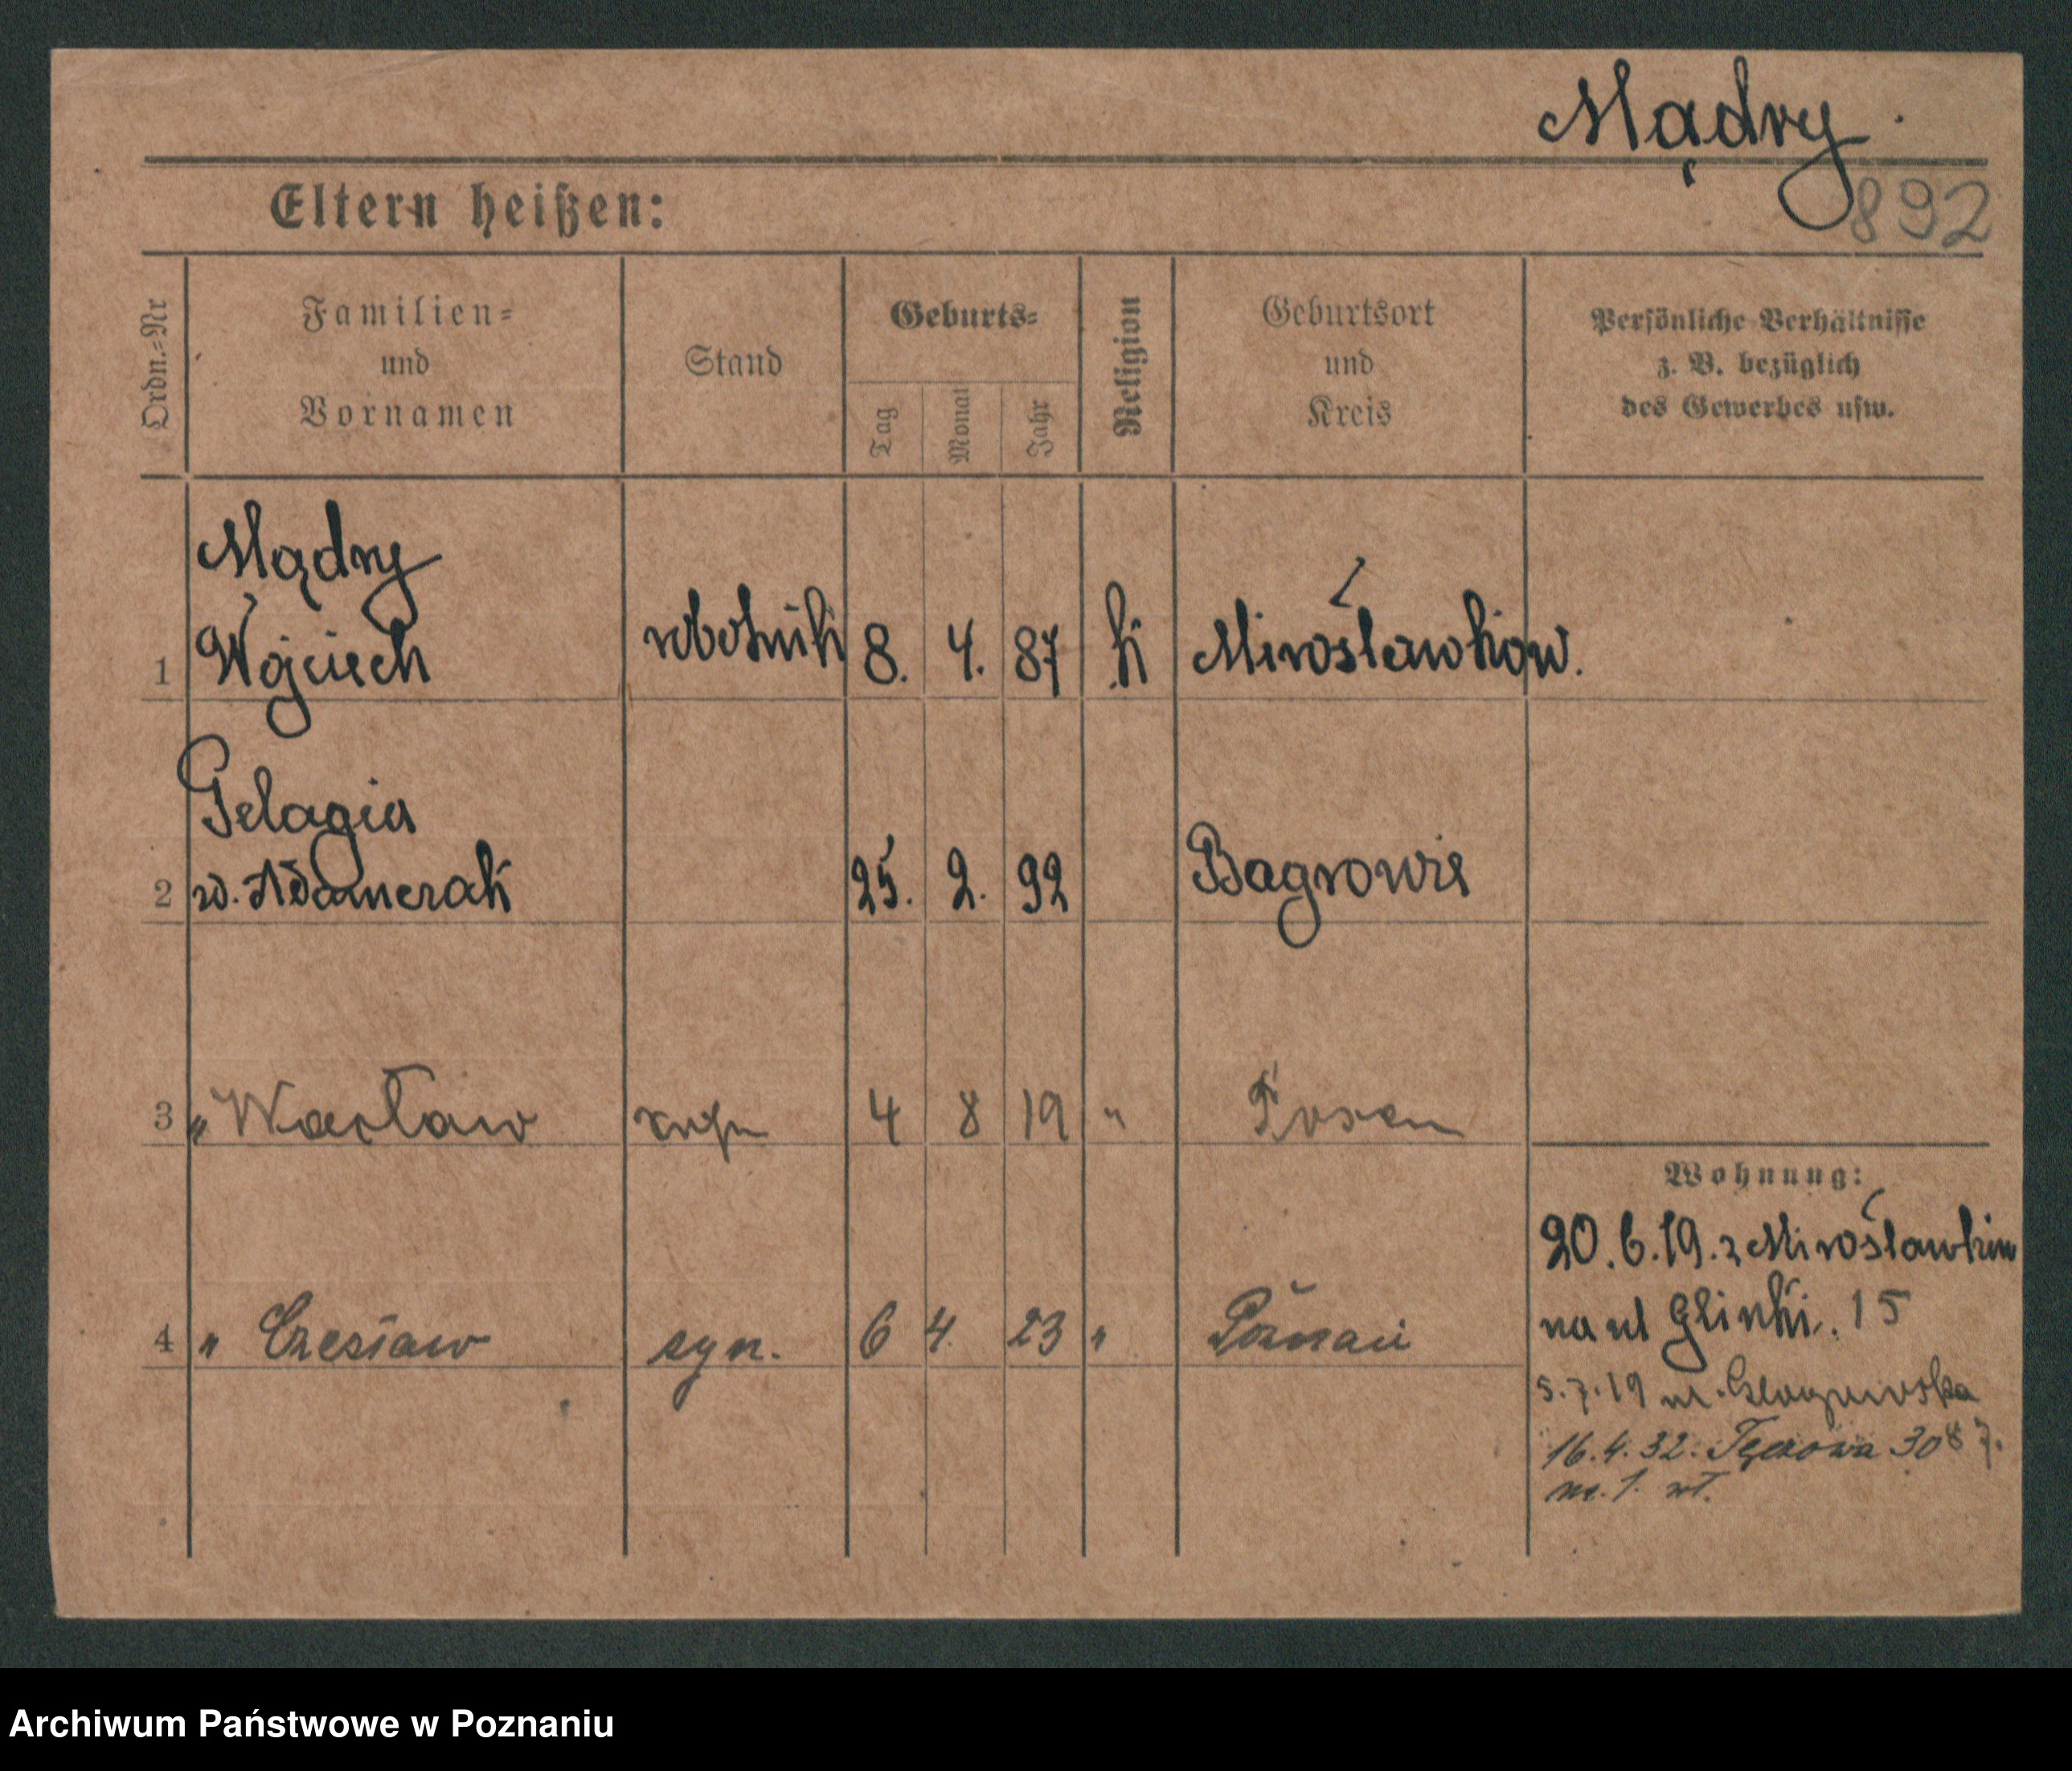 Mądry.
892
Eltern heißen:
Ordn.-Nr
Familien-
und
Vornamen
Stand
Geburts-
Tag
Monat
Jahr
Religion
Geburtsort
und
Kreis
Persönliche Verhältnisse
z. B. bezüglich
des Gewerbes usw.
Mądry
1 Wojciech robotnik 8. 4. 87 k Mirosławkow.
Pelagia
2 Adamczak 25. 2. 92 Bagrowie
3 " Wacław 4 8 19 " Posen
4 " Czesław syn. 6 4. 23 " Poznań
Wohnung:
20.6.19. z
na ul Glinki. 15
5.7.19 ul.
16.4.32. Tęczowa 30
m. 1.
Archiwum Państwowe w Poznaniu